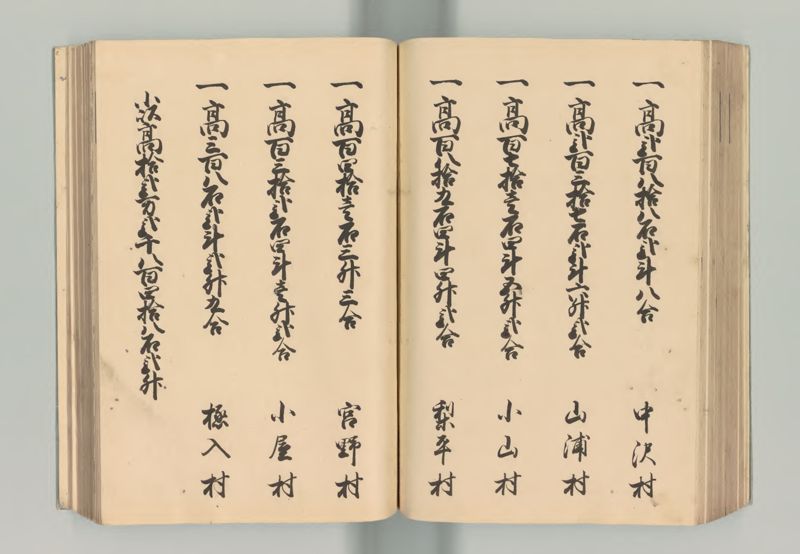 一高弐百八拾八石弐斗八合 中沢村
一高弐百三拾七石弐斗六升弐合 山浦村
一高百七拾壱石四斗五升弐合 小山村
一高百八拾九石四斗四升弐合 梨平村
一高百四拾壱石三升三合 宮野村
一高百三拾弐石四斗壱升弐合 小屋村
一高三百八石弐斗弐升九合 極入村
高拾弐万弐千八百四拾八石弐升